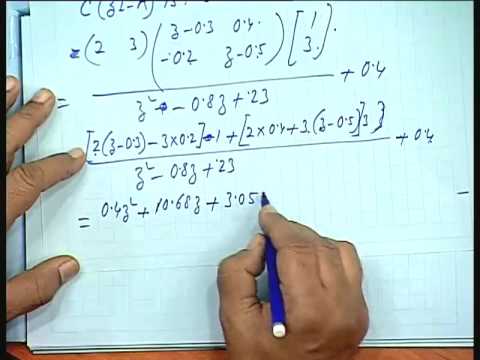 C(zI-A)
= (2 3) (z-0.3 0.4 -0.2 z-0.5) [1 3]
= + 0.4
z² - 0.8z + .23
[2(z-0.3) - 3×0.2] 1 + [2×0.4 + 3(z-0.5)] 3 } + 0.4
z² - 0.8z + .23
= 0.4z² + 10.68z + 3.05